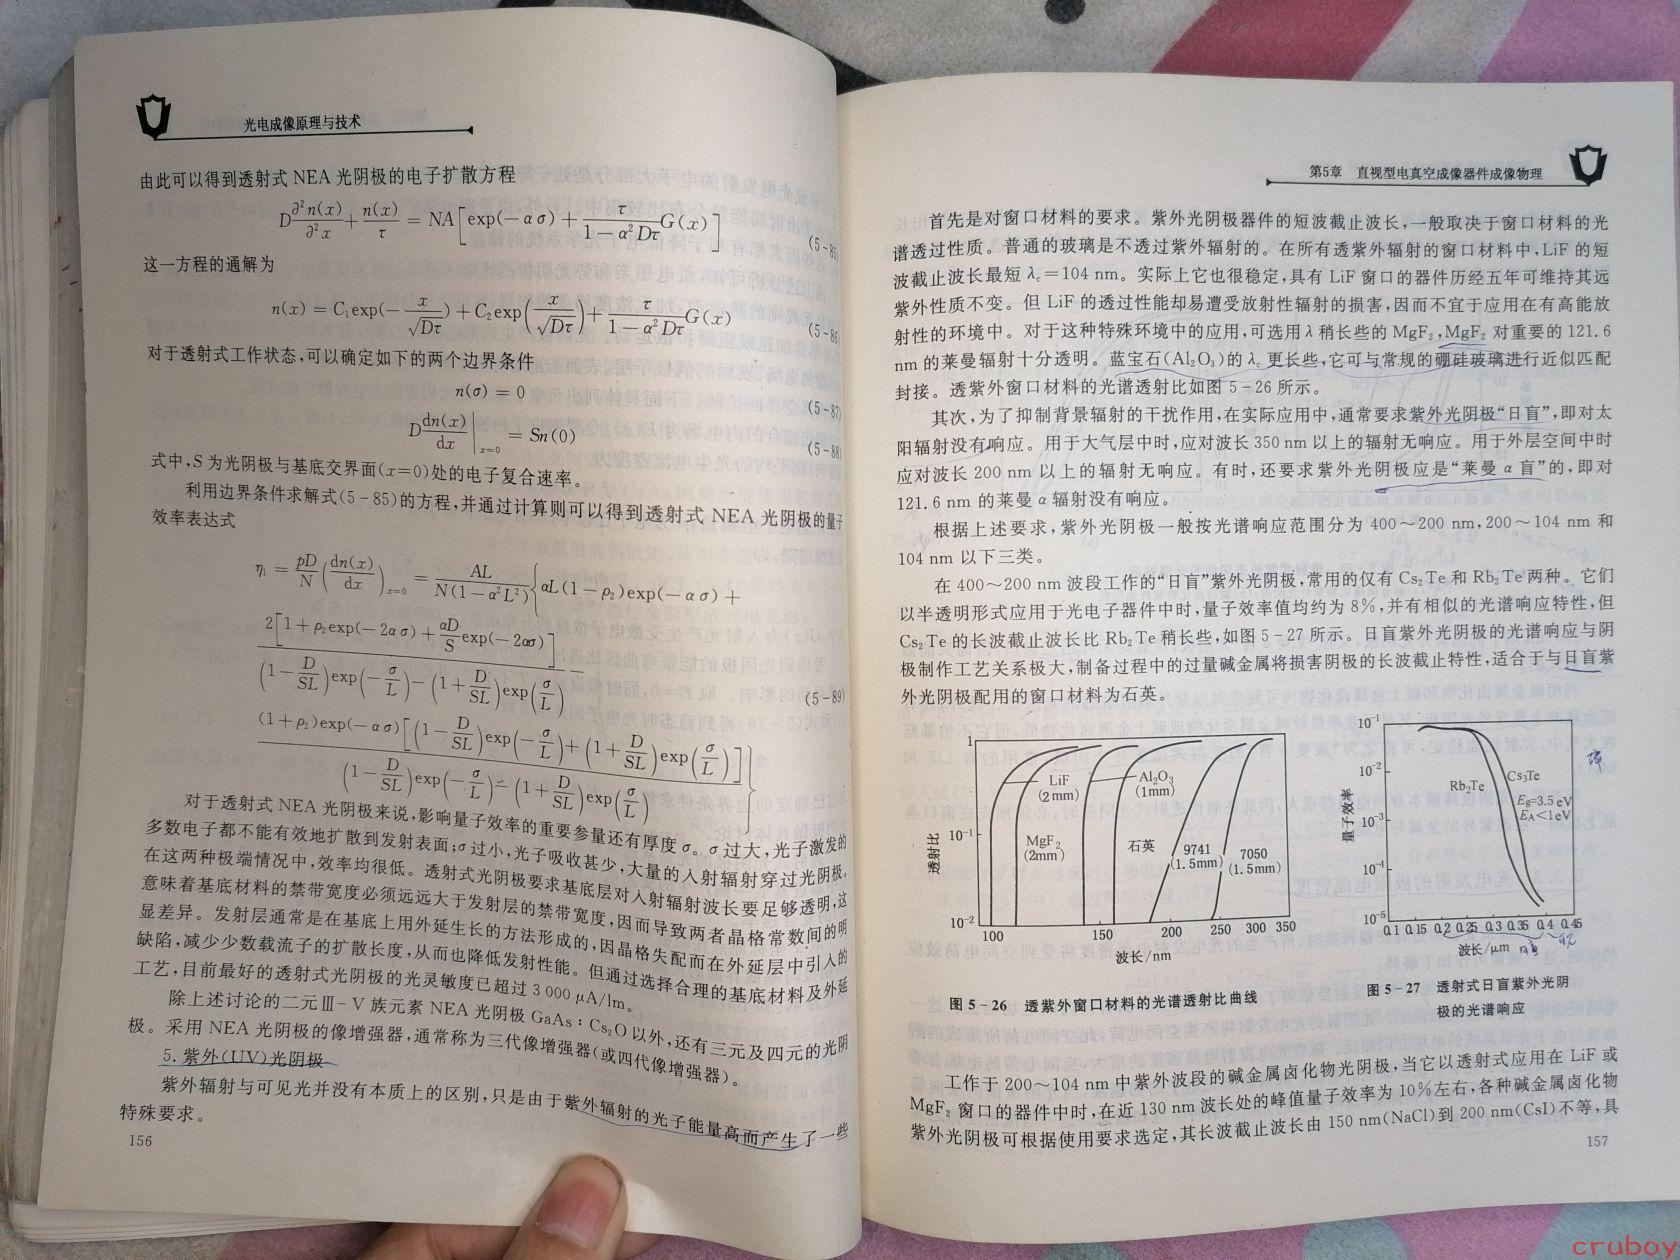 光电成像原理与技术
由此可以得到透射式 NEA 光阴极的电子扩散方程
D∂²n(x)/∂²x + n(x)/τ = NA[exp(−ασ) + τ/(1−α²Dτ)G(x)]
(5-85)
这一方程的通解为
n(x) = C₁exp(−x/√Dτ) + C₂exp(x/√Dτ) + τ/(1−α²Dτ)G(x)
(5-86)
对于透射式工作状态,可以确定如下的两个边界条件
n(σ) = 0
(5-87)
Ddn(x)/dx|ₓ₌₀ = Sn(0)
(5-88)
式中,S为光阴极与基底交界面(x=0)处的电子复合速率。
利用边界条件求解式(5-85)的方程,并通过计算则可以得到透射式 NEA 光阴极的量子
效率表达式
η₁ = pD/N(dn(x)/dx)ₓ₌₀ = AL/N(1−α²L²){αL(1−ρ₂)exp(−ασ) +
2[1+ρ₂exp(−2ασ)+αD/S exp(−2ασ)]
(1−D/SL)exp(−σ/L)−(1+D/SL)exp(σ/L)
(5-89)
(1+ρ₂)exp(−ασ)[(1−D/SL)exp(−σ/L)+(1+D/SL)exp(σ/L)]}
(1−D/SL)exp(−σ/L)−(1+D/SL)exp(σ/L)
对于透射式 NEA 光阴极来说,影响量子效率的重要参量还有厚度 σ。σ 过大,光子激发的
多数电子都不能有效地扩散到发射表面;σ 过小,光子吸收甚少,大量的入射辐射穿过光阴极。
在这两种极端情况中,效率均很低。透射式光阴极要求基底层对入射辐射波长要足够透明,这
意味着基底材料的禁带宽度必须远远大于发射层的禁带宽度,因而导致两者晶格常数间的明
显差异。发射层通常是在基底上用外延生长的方法形成的,因晶格失配而在外延层中引入的
缺陷,减少少数载流子的扩散长度,从而也降低发射性能。但通过选择合理的基底材料及外延
工艺,目前最好的透射式光阴极的光灵敏度已超过 3 000 μA/lm。
除上述讨论的二元Ⅲ-Ⅴ族元素 NEA 光阴极 GaAs:Cs₂O 以外,还有三元及四元的光阴
极。采用 NEA 光阴极的像增强器,通常称为三代像增强器(或四代像增强器)。
5. 紫外(UV)光阴极
紫外辐射与可见光并没有本质上的区别,只是由于紫外辐射的光子能量高而产生了一些
特殊要求。
156
第5章 直视型电真空成像器件成像物理
首先是对窗口材料的要求。紫外光阴极器件的短波截止波长,一般取决于窗口材料的光
谱透过性质。普通的玻璃是不透过紫外辐射的。在所有透紫外辐射的窗口材料中,LiF 的短
波截止波长最短 λc=104 nm。实际上它也很稳定,具有 LiF 窗口的器件历经五年可维持其远
紫外性质不变。但 LiF 的透过性能却易遭受放射性辐射的损害,因而不宜于应用在有高能放
射性的环境中。对于这种特殊环境中的应用,可选用 λ 稍长些的 MgF₂,MgF₂ 对重要的 121.6
nm 的莱曼辐射十分透明。蓝宝石(Al₂O₃)的 λc 更长些,它可与常规的硼硅玻璃进行近似匹配
封接。透紫外窗口材料的光谱透射比如图 5-26 所示。
其次,为了抑制背景辐射的干扰作用,在实际应用中,通常要求紫外光阴极“日盲”,即对太
阳辐射没有响应。用于大气层中时,应对波长 350 nm 以上的辐射无响应。用于外层空间中时
应对波长 200 nm 以上的辐射无响应。有时,还要求紫外光阴极应是“莱曼 α 盲”的,即对
121.6 nm 的莱曼 α 辐射没有响应。
根据上述要求,紫外光阴极一般按光谱响应范围分为 400～200 nm,200～104 nm 和
104 nm 以下三类。
在 400～200 nm 波段工作的“日盲”紫外光阴极,常用的仅有 Cs₂Te 和 Rb₂Te 两种。它们
以半透明形式应用于光电子器件中时,量子效率值均约为 8%,并有相似的光谱响应特性,但
Cs₂Te 的长波截止波长比 Rb₂Te 稍长些,如图 5-27 所示。日盲紫外光阴极的光谱响应与阴
极制作工艺关系极大,制备过程中的过量碱金属将损害阴极的长波截止特性,适合于与日盲紫
外光阴极配用的窗口材料为石英。
透射比
1
10⁻¹
10⁻²
LiF
(2mm)
Al₂O₃
(1mm)
MgF₂
(2mm)
石英
9741
(1.5mm)
7050
(1.5mm)
100 150 200 250 300 350
波长/nm
图 5-26 透紫外窗口材料的光谱透射比曲线
量子效率
10⁻¹
10⁻²
10⁻³
10⁻⁴
10⁻⁵
Rb₂Te
Cs₃Te
Eg=3.5 eV
EA<1eV
0.1 0.15 0.2 0.25 0.3 0.35 0.4 0.45
波长/μm
图 5-27 透射式日盲紫外光阴
极的光谱响应
工作于 200～104 nm 中紫外波段的碱金属卤化物光阴极,当它以透射式应用在 LiF 或
MgF₂ 窗口的器件中时,在近 130 nm 波长处的峰值量子效率为 10%左右,各种碱金属卤化物
紫外光阴极可根据使用要求选定,其长波截止波长由 150 nm(NaCl)到 200 nm(CsI)不等,具
157
cruboy